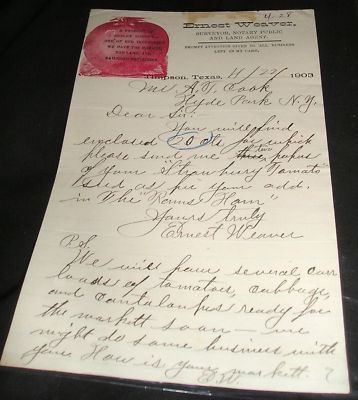 4.28
Ernest Weaver,
SURVEYOR, NOTARY PUBLIC
AND LAND AGENT.
PROMPT ATTENTION GIVEN TO ALL BUSINESS
LEFT IN MY CARE.
Timpson, Texas, 4/22/1903
Mr A. T. Cook
Hyde Park N.Y.
Dear Sir:
You will find
enclosed 20 cts for which
please send me two papers
of your "Strawberry Tomato"
seed as per your add.
in The "Rams Horn"
Yours truly
Ernest Weaver
P.S.
We will have several car
loads of tomatoes, Cabbage,
and Cantaloupes ready for
the market soon — we
might do some business with
you. How is your market?
E.W.